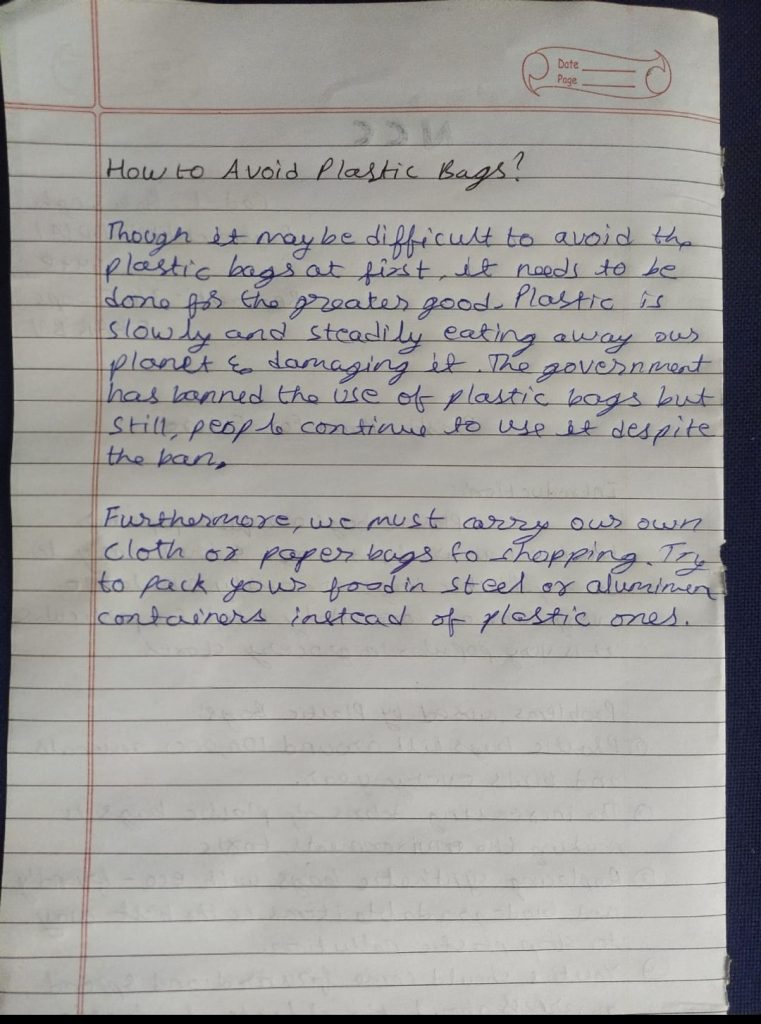 Date
Page
How to Avoid Plastic Bags?
Though it may be difficult to avoid the
plastic bags at first, it needs to be
done for the greater good. Plastic is
slowly and steadily eating away our
planet & damaging it. The government
has banned the use of plastic bags but
still, people continue to use it despite
the ban.
Furthermore, we must carry our own
cloth or paper bags to shopping. Try
to pack your food in steel or aluminen
containers instead of plastic ones.